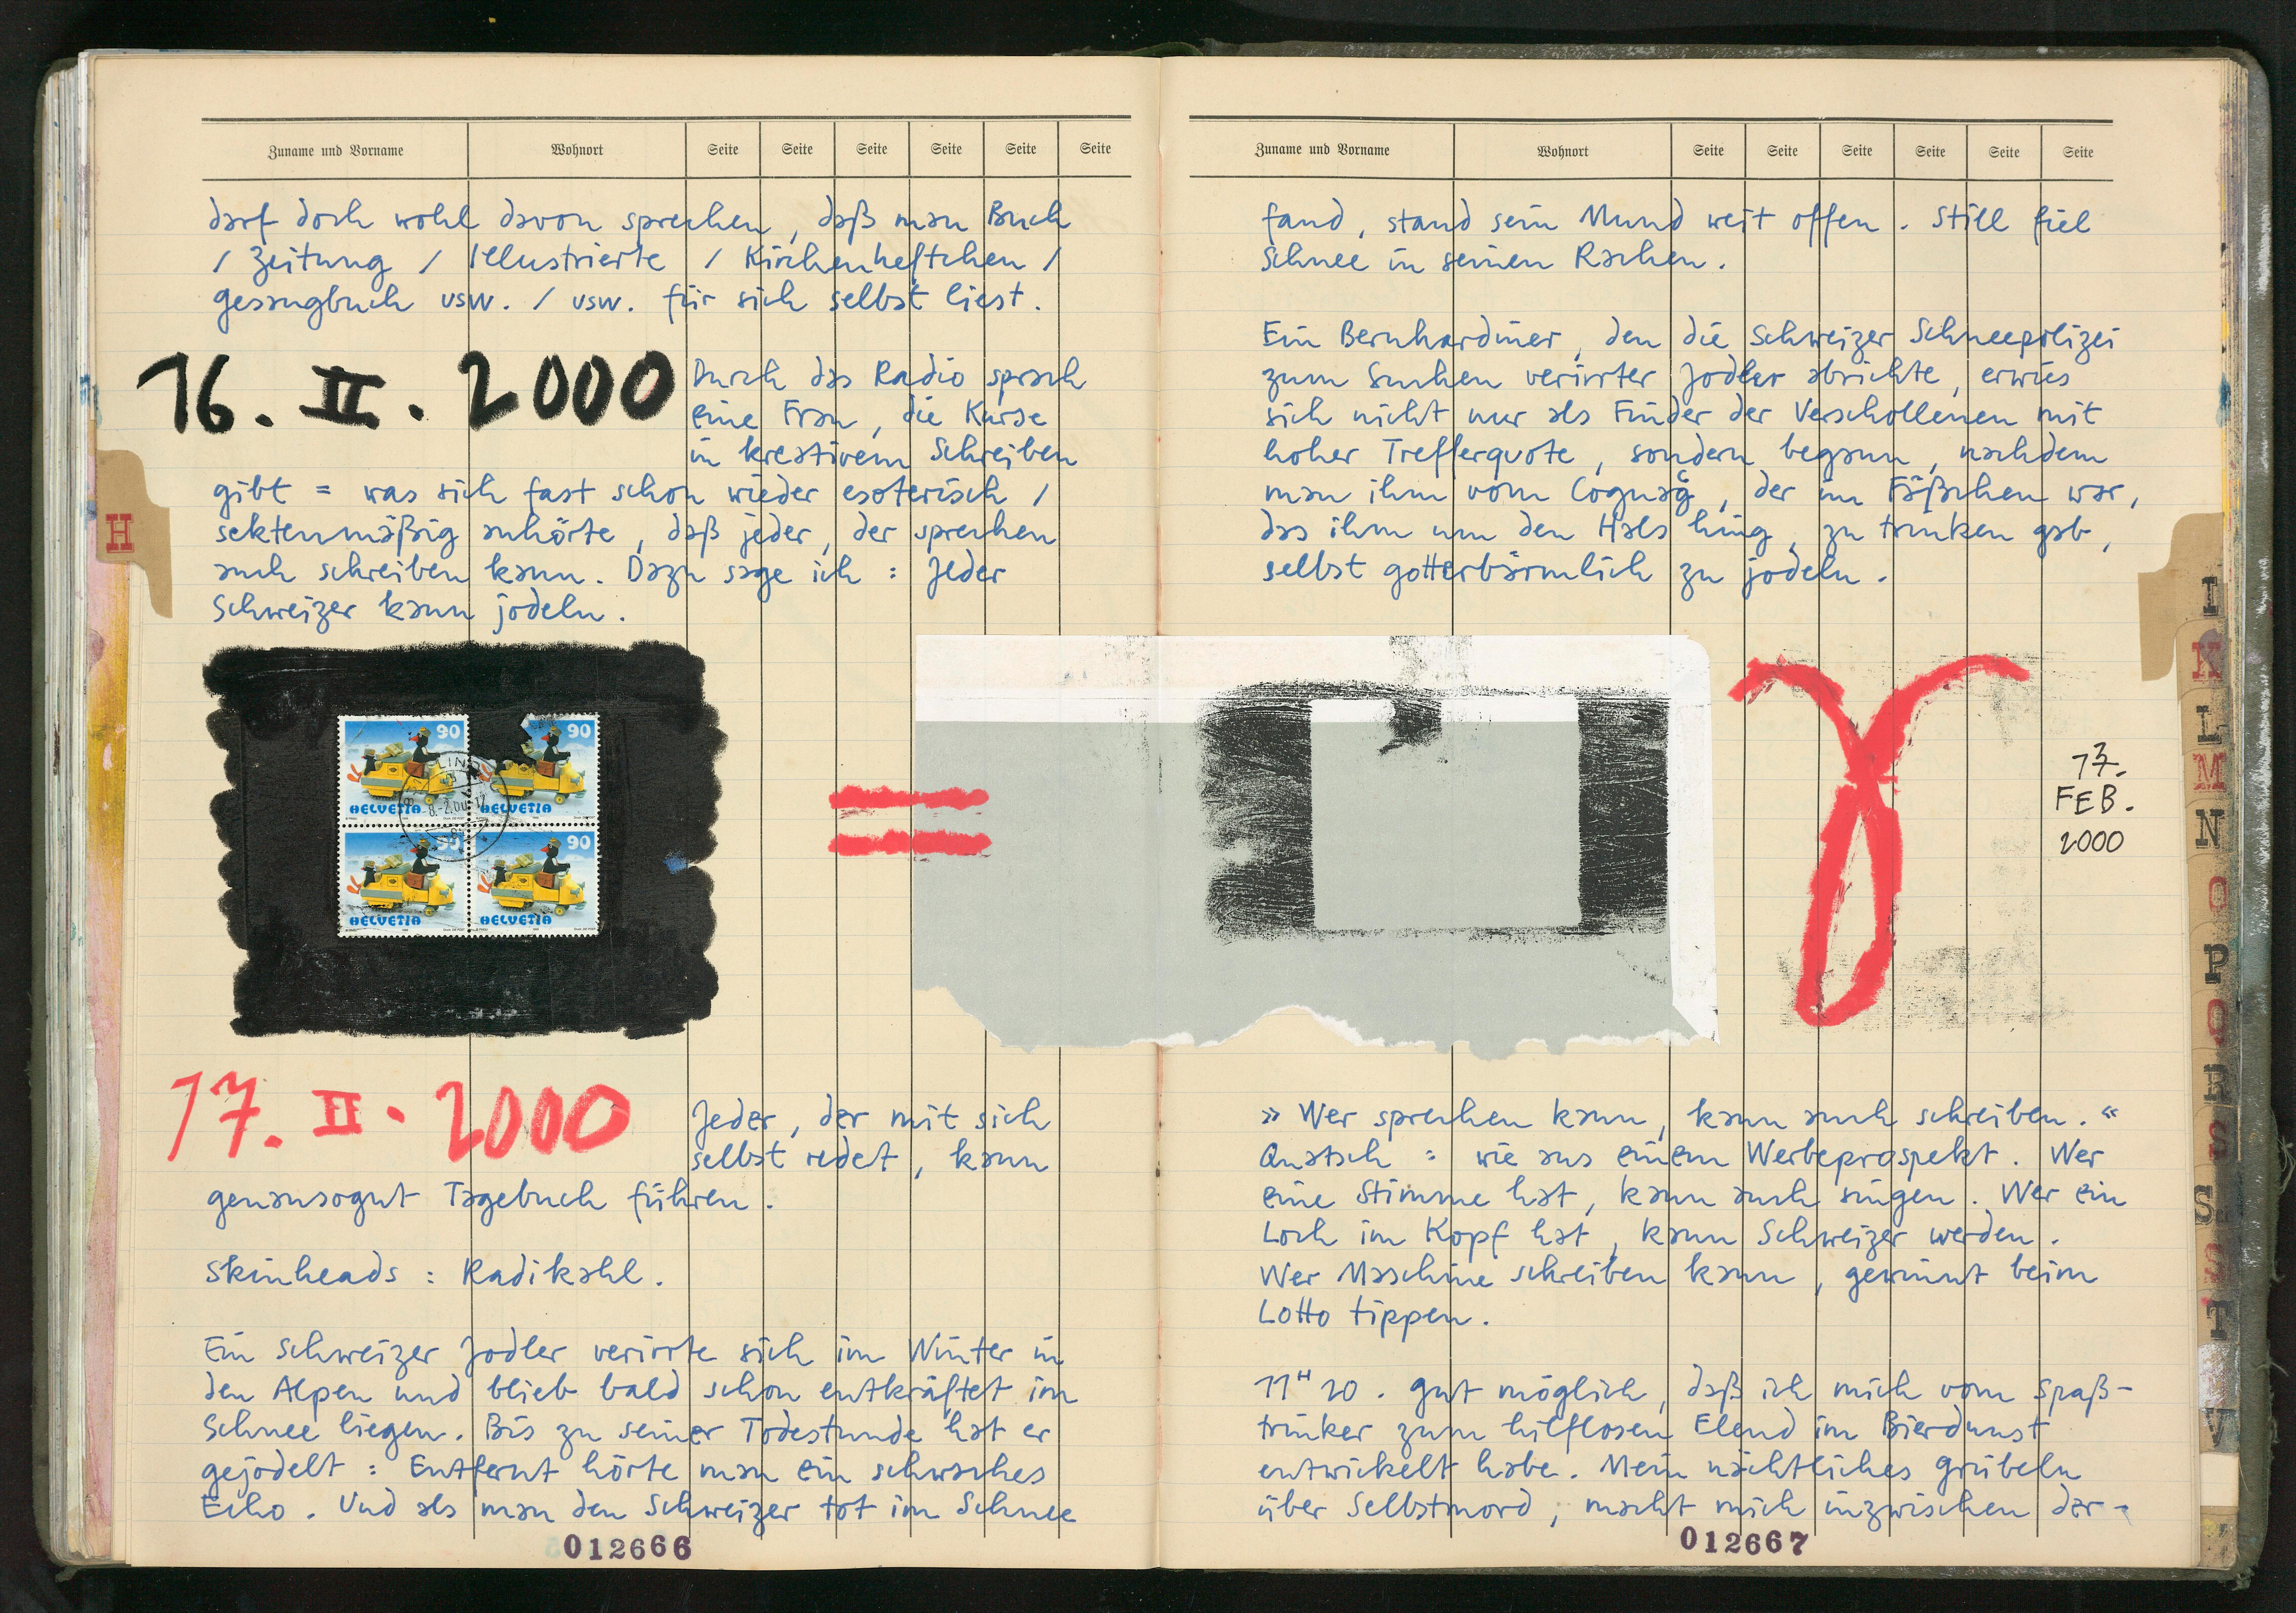 Zuname und Vorname Wohnort Seite Seite Seite Seite Seite Seite
darf doch wohl davon sprechen, daß man Buch
/ Zeitung / Illustrierte / Kirchenheftchen /
Gesangbuch usw. / usw. für sich selbst liest.
16. II. 2000
Durch das Radio sprach
eine Frau, die Kurse
in kreativem Schreiben
gibt = was sich fast schon wieder esoterisch /
sektenmäßig anhörte, daß jeder, der sprechen
auch schreiben kann. Dazu sage ich : Jeder
Schweizer kann jodeln.
H
90 90
HELVETIA HELVETIA
90 90
HELVETIA HELVETIA
=
17. II. 2000
Jeder, der mit sich
selbst redet, kann
genausogut Tagebuch führen.
Skinheads : Radikahl.
Ein Schweizer Jodler verirrte sich im Winter in
den Alpen und blieb bald schon entkräftet im
Schnee liegen. Bis zu seiner Todestunde hat er
gejodelt : Entfernt hörte man ein schwaches
Echo. Und als man den Schweizer tot im Schnee
012666
Zuname und Vorname Wohnort Seite Seite Seite Seite Seite Seite
fand, stand sein Mund weit offen. Still fiel
Schnee in seinen Rachen.
Ein Bernhardiner, den die Schweizer Schneepolizei
zum Suchen verirrter Jodler abrichte, erwies
sich nicht nur als Finder der Verschollenen mit
hoher Trefferquote, sondern begann, nachdem
man ihm vom Cognag, der im Fäßchen war,
das ihm um den Hals hing, zu trinken gab,
selbst gotterbärmlich zu jodeln.
17.
FEB.
2000
» Wer sprechen kann, kann auch schreiben. «
Quatsch : wie aus einem Werbeprospekt. Wer
eine Stimme hat, kann auch singen. Wer ein
Loch im Kopf hat, kann Schweizer werden.
Wer Maschine schreiben kann, gewinnt beim
Lotto tippen.
11ᴴ20. Gut möglich, daß ich mich vom Spaß-
trinker zum hilflosen Elend im Bierdunst
entwickelt habe. Mein nächtliches Grübeln
über Selbstmord, macht mich inzwischen der-
012667
I
K
L
M
N
O
P
Q
R
S
S
T
V